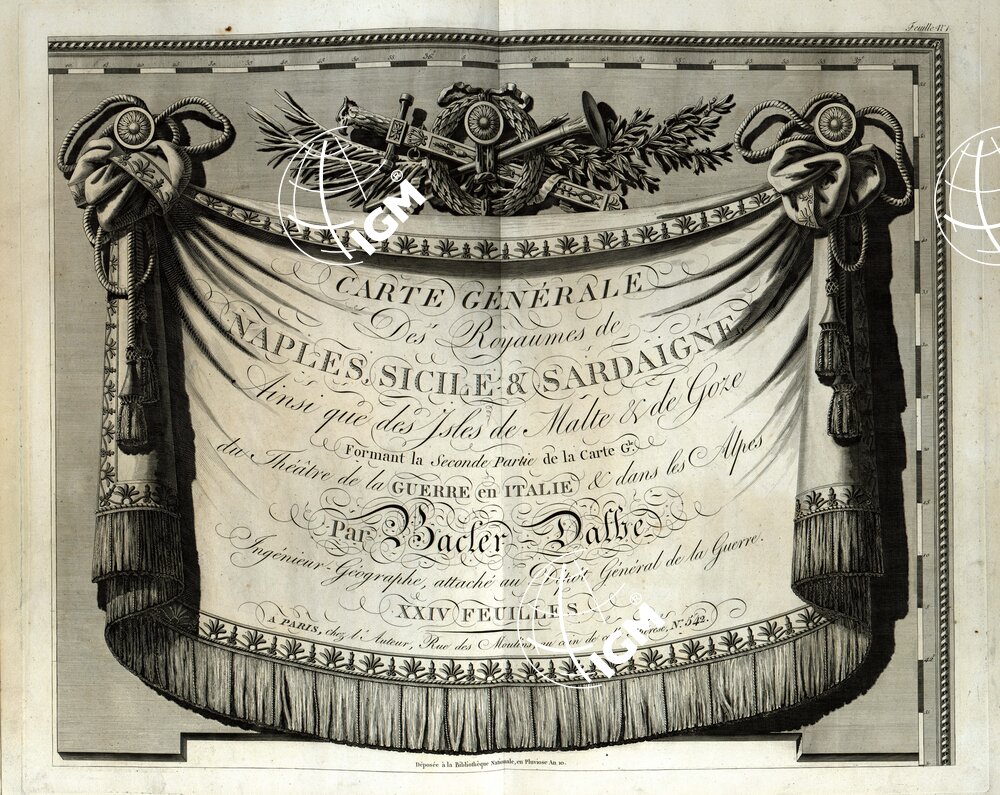 Feuille
CARTE GÉNÉRALE
Des Royaumes de
NAPLES, SICILE & SARDAIGNE,
Ainsi que des Isles de Malte & de Goze
Formant la Seconde Partie de la Carte G.le
du Théâtre de la GUERRE en ITALIE & dans les Alpes
Par Bacler-Dalbe
Ingénieur-Géographe, attaché au Dépôt Général de la Guerre.
XXIV FEUILLES
A PARIS, chez l'Auteur, Rue des Moulins, au coin de N.º 542.
Déposée à la Bibliothèque Nationale, en Pluviose An 10.
IGM®
IGM